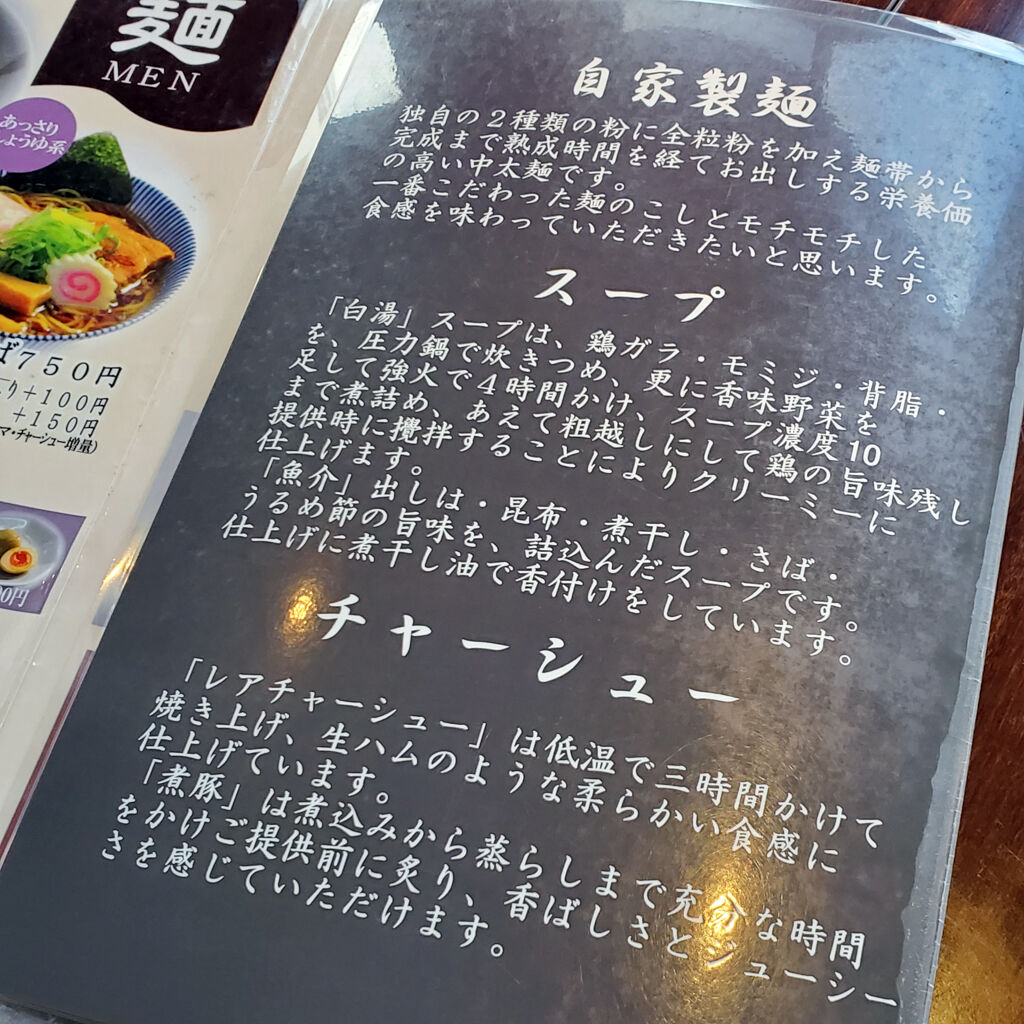 麺
MEN
あっさり
しょうゆ系
ば750円
り+100円
+150円
マ・チャーシュー増量)
00円
自家製麺
独自の2種類の粉に全粒粉を加え麺帯から
完成まで熟成時間を経てお出しする栄養価
の高い中太麺です。
一番こだわった麺のこしとモチモチした
食感を味わっていただきたいと思います。
スープ
「白湯」スープは、鶏ガラ・モミジ・背脂・
を、圧力鍋で炊きつめ、更に香味野菜を
足して強火で4時間かけ、スープ濃度10
まで煮詰め、あえて粗越しにして鶏の旨味残し
提供時に攪拌することによりクリーミーに
仕上げます。
「魚介」出しは・昆布・煮干し・さば・
うるめ節の旨味を、詰込んだスープです。
仕上げに煮干し油で香付けをしています。
チャーシュー
「レアチャーシュー」は低温で三時間かけて
焼き上げ、生ハムのような柔らかい食感に
仕上げています。
「煮豚」は煮込みから蒸らしまで充分な時間
をかけご提供前に炙り、香ばしさとジューシー
さを感じていただけます。